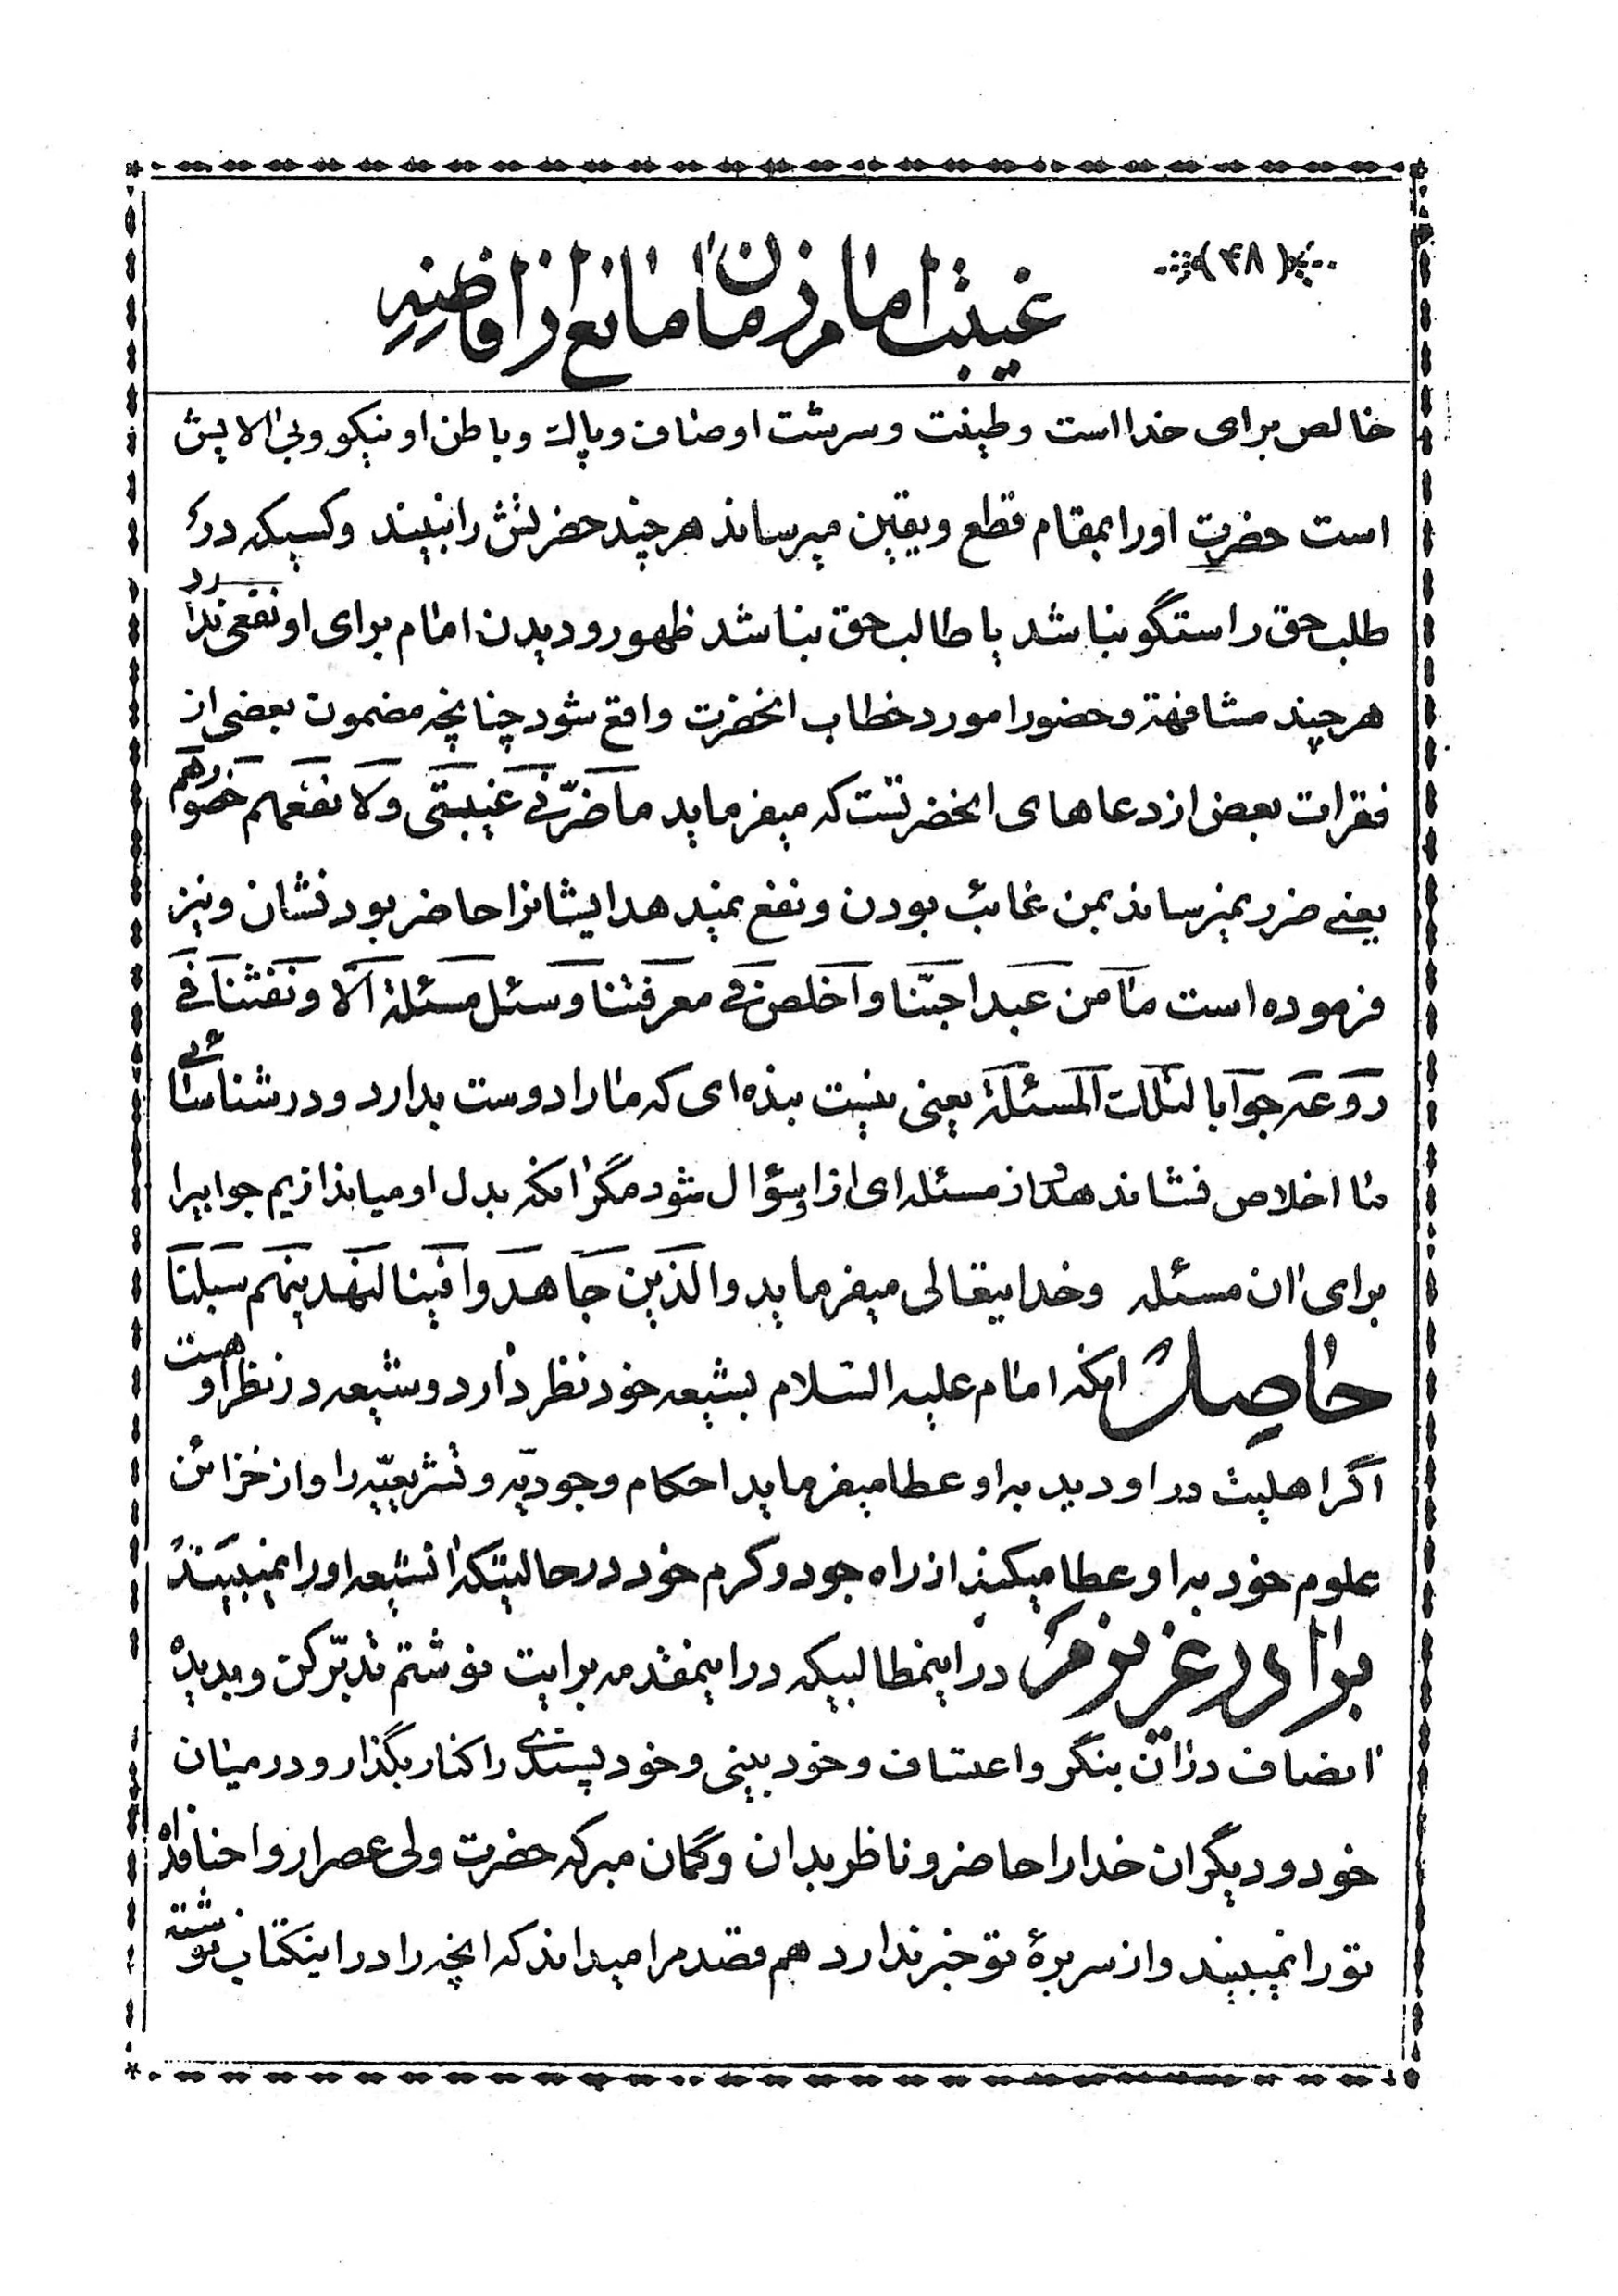 (۴۸)
غیبت امام زمان مانع از افاضه
خالص برای خدا است و طینت و سرشت او صاف و پاک و باطن او نیکو و بی الایش
است حضرت او را بمقام قطع و یقین میرساند هر چند حضرتش را نبیند و کسیکه در
طلب حق راستگو نباشد یا طالب حق نباشد ظهور و دیدن امام برای او نفعی ندارد
هر چند مشافهة و حضورا مورد خطاب انحضرت واقع شود چنانچه مضمون بعضی از
فقرات بعض از دعاهای انحضرتست که میفرماید ما ضَرَّنی غَیبَتی وَلا نَفَعَهُم حُضُورهم
یعنی ضرر نمیرساند بمن غائب بودن و نفع نمیدهد ایشانرا حاضر بودنشان و نیز
فرموده است ما من عَبد احبَّنا و اَخلص فی معرفتنا و سئل مسئلة الّا و نفثنا فی
رَوعه جوابا لتلک المَسئلة یعنی نیست بنده‌ای که ما را دوست بدارد و در شناسائی
ما اخلاص نشاندهد و از مسئله‌ای از او سؤال شود مگر انکه بدل او میاندازیم جوابیرا
برای ان مسئله و خدایتعالی میفرماید والذین جاهدوا فینا لنهدینهم سبلنا
حاصل انکه امام علیه السّلام بشیعه خود نظر دارد و شیعه در نظر او هست
اگر اهلیت در او دید به او عطا میفرماید احکام وجودیّه و تشریعیّه را و از خزائن
علوم خود به او عطا میکند از راه جود و کرم خود در حالیتکه انشیعه او را نمیبیند
برادر عزیزم در اینمطالبیکه در اینمقدمه برایت نوشتم تدبّر کن و بدیدهٔ
انصاف در ان بنگر و اعتساف و خود بینی و خود پسندی را کنار بگذار و در میان
خود و دیگران خدا را حاضر و ناظر بدان و گمان مبر که حضرت ولی عصر ارواحنا فداه
تو را نمیبیند و از سریرهٔ تو خبر ندارد هم قصد مرا میداند که انچه را در اینکتاب نوشته